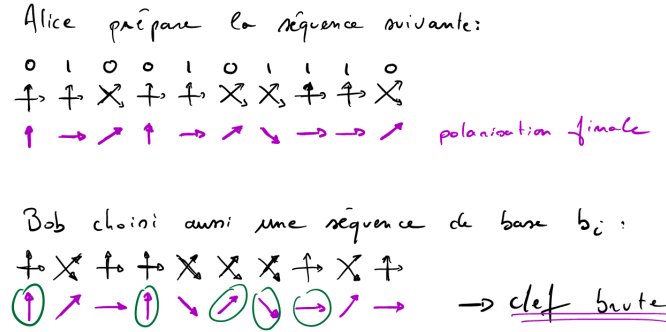 Alice prépare la séquence suivante:
0 1 0 0 1 0 1 1 1 0
polarisation finale
Bob choisi aussi une séquence de base bi :
→ clef brute